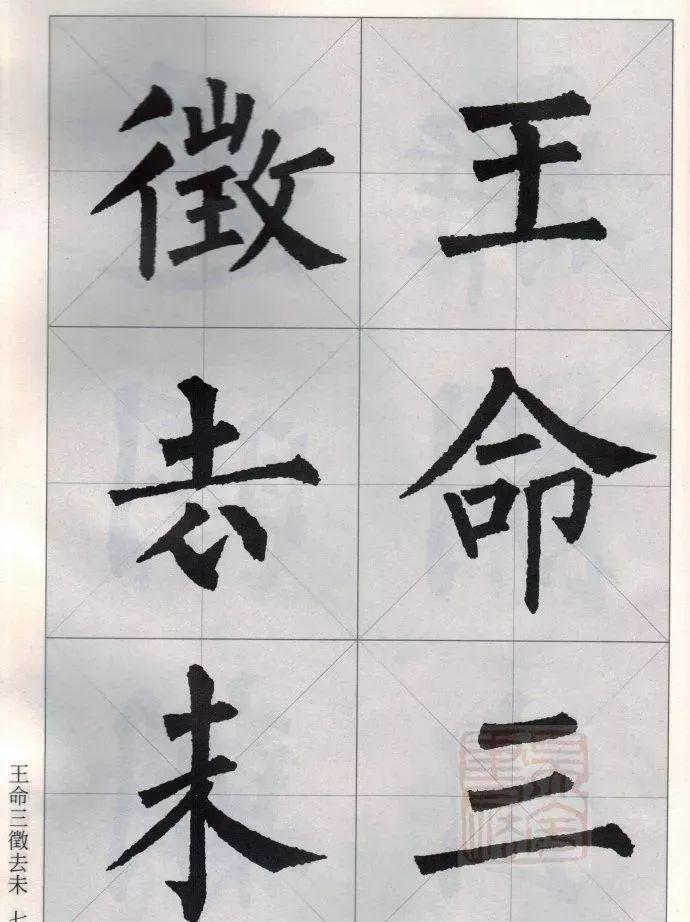 王命三
徵去未
王命三徵去未 七